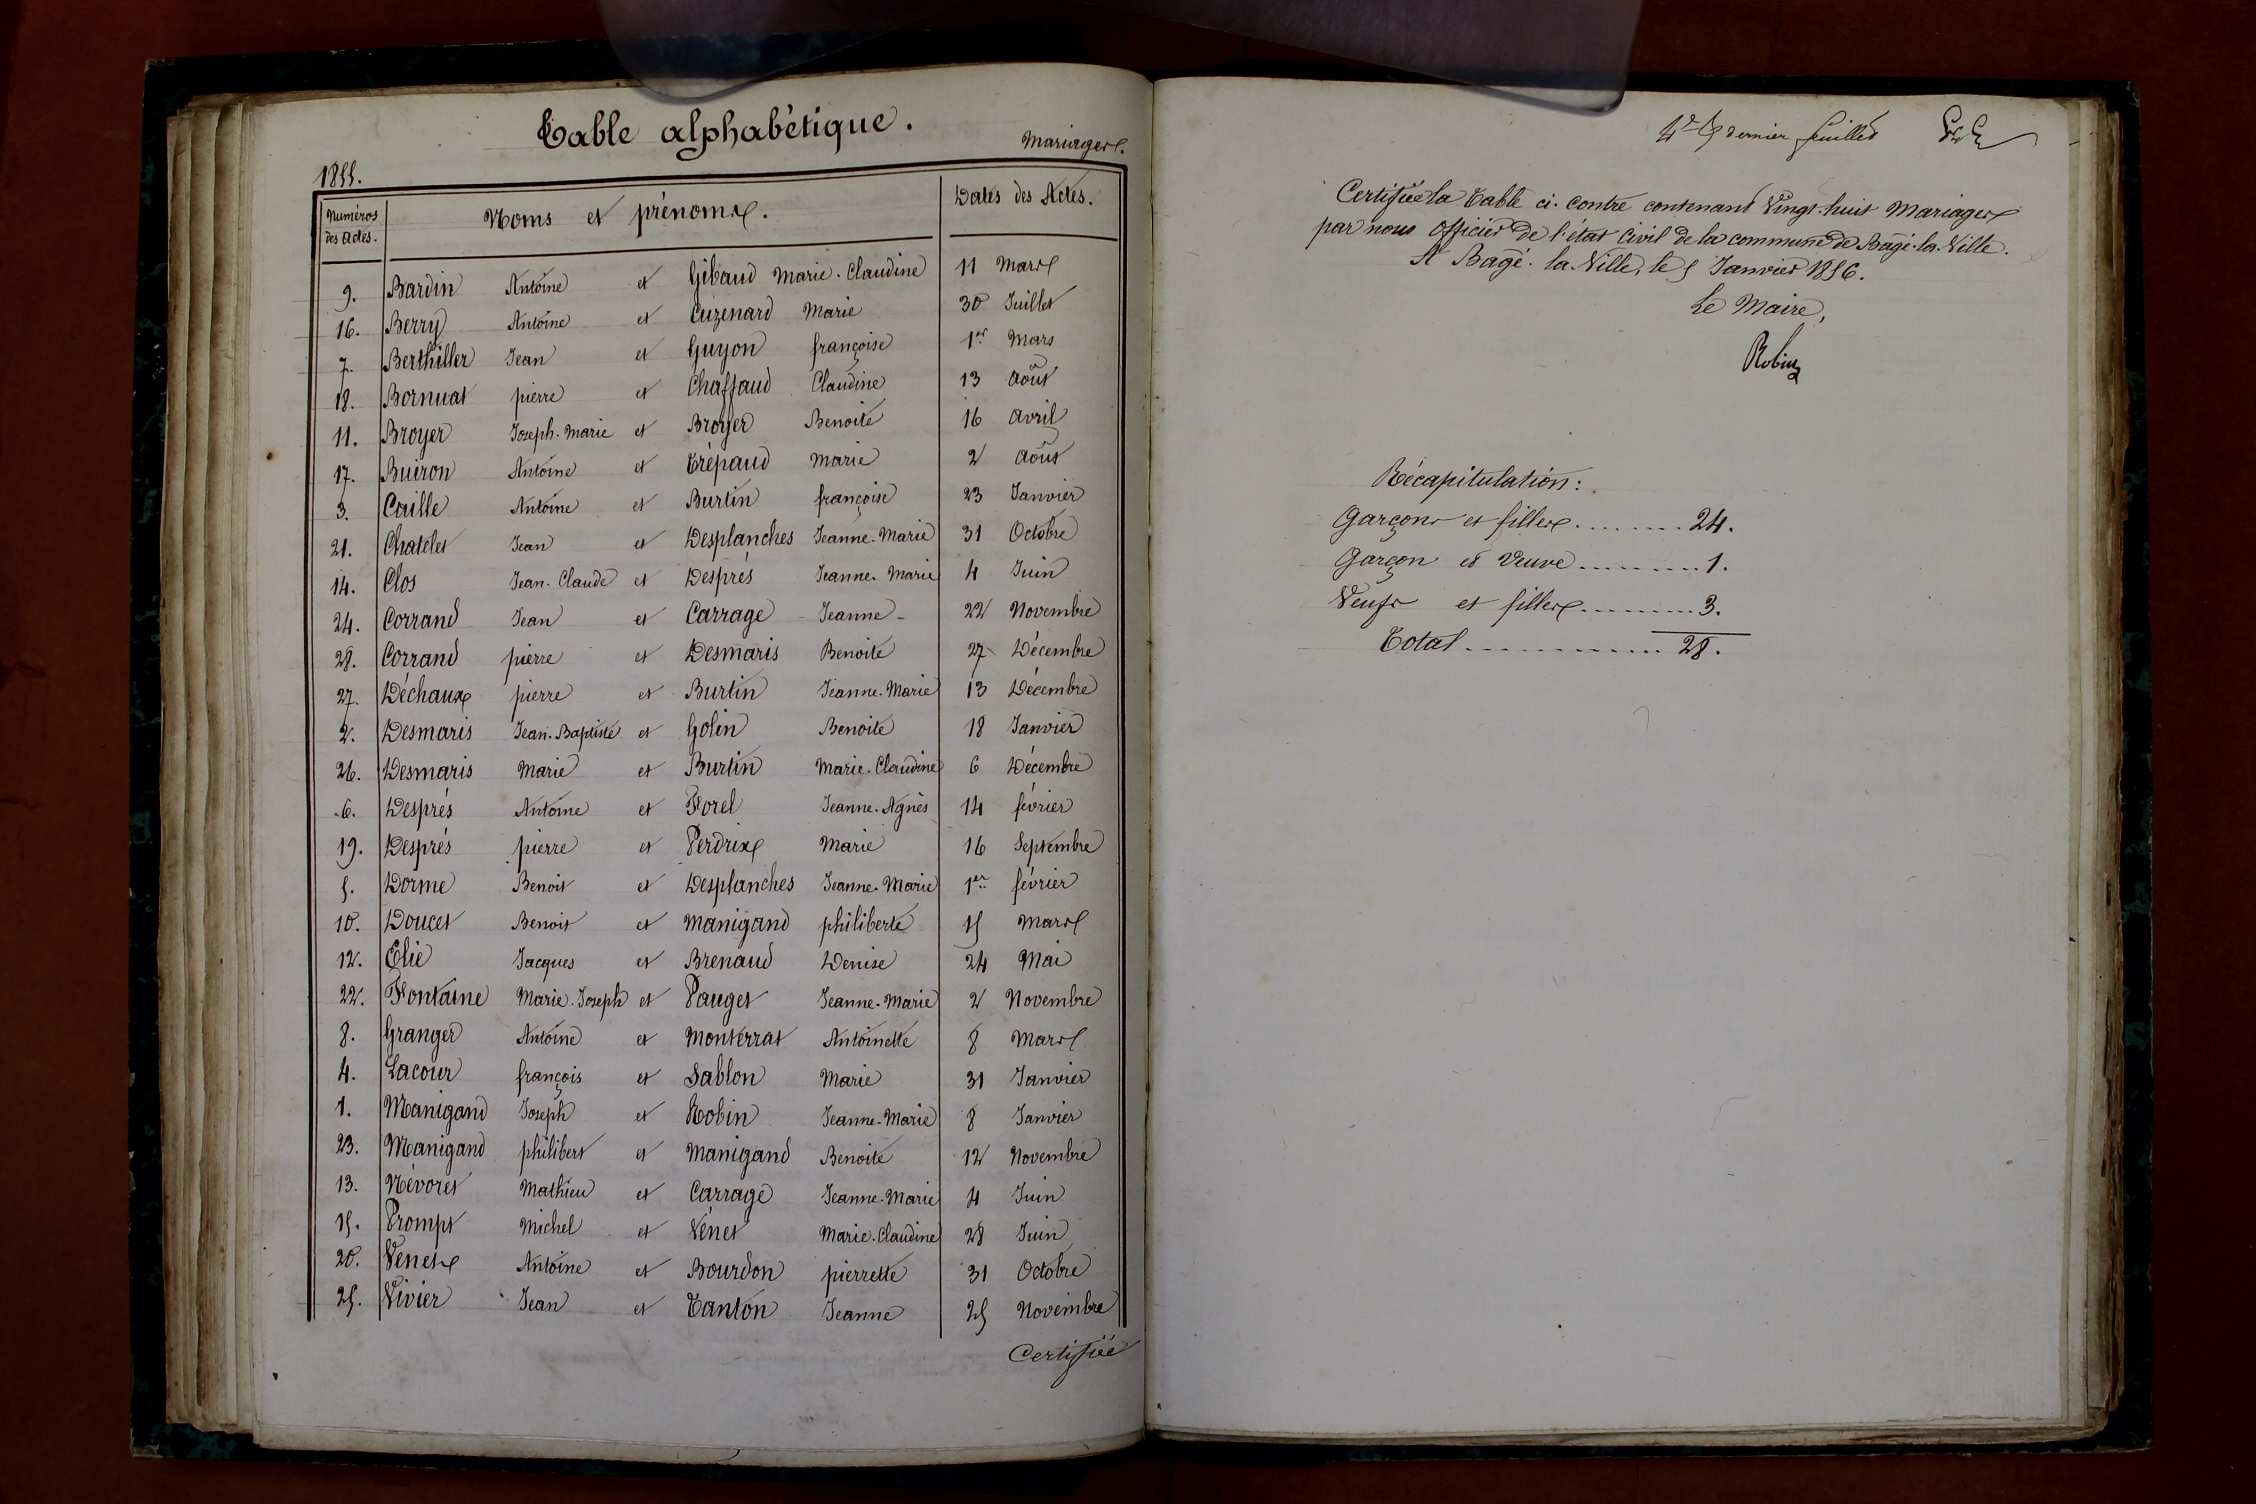 Table alphabétique.
Mariages.
1855.
Numéros des Actes. Noms et prénoms. Dates des Actes.
9. Bardin Antoine et Gibaud Marie-Claudine 11 Mars
16. Berry Antoine et Cuzenard Marie 30 Juillet
7. Berthiller Jean et Guyon françoise 1er Mars
18. Bornuat pierre et Chaffaud Claudine 13 Août
11. Broyer Joseph-Marie et Broyer Benoite 16 Avril
17. Buiron Antoine et Trépaud Marie 2 Août
3. Caille Antoine et Burtin françoise 23 Janvier
21. Chatelet Jean et Desplanches Jeanne-Marie 31 Octobre
14. Clos Jean-Claude et Després Jeanne-Marie 4 Juin
24. Corrand Jean et Carrage Jeanne 22 Novembre
28. Corrand pierre et Desmaris Benoite 27 Décembre
27. Déchaux pierre et Burtin Jeanne-Marie 13 Décembre
2. Desmaris Jean-Baptiste et Golin Benoite 18 Janvier
26. Desmaris Marie et Burtin Marie-Claudine 6 Décembre
6. Després Antoine et Forel Jeanne-Agnès 14 février
19. Després pierre et Perdrix Marie 16 Septembre
5. Dorme Benoit et Desplanches Jeanne-Marie 1er février
10. Doucet Benoit et Manigand philiberte 15 Mars
12. Elie Jacques et Brenaud Denise 24 Mai
22. Fontaine Marie-Joseph et Pauget Jeanne-Marie 2 Novembre
8. Granger Antoine et Monterrat Antoinette 8 Mars
4. Lacour françois et Sablon Marie 31 Janvier
1. Manigand Joseph et Robin Jeanne-Marie 8 Janvier
23. Manigand philibert et Manigand Benoite 12 Novembre
13. Névoret Mathieu et Carrage Jeanne-Marie 4 Juin
15. Prompt Michel et Vénet Marie-Claudine 28 Juin
20. Venet Antoine et Bourdon pierrette 31 Octobre
25. Vivier Jean et Tanton Jeanne 25 Novembre
Certifiée
4e & dernier feuillet
Certifiée la Table ci-contre contenant Vingt-huit Mariages
par nous Officier de l'état Civil de la commune de Bâgé-la-Ville.
A Bâgé-la-Ville, le 5 Janvier 1856.
Le Maire,
Robin
Récapitulation:
Garçons et filles ........ 24.
Garçon et Veuve ........ 1.
Veufs et filles ........ 3.
Total ............... 28.